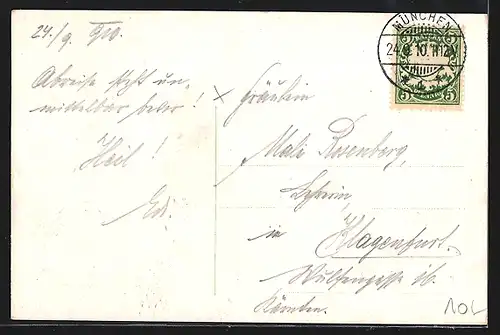 24./9. 1910.
Abreise steht un-
mittelbar bevor!
Heil!
Edi.
MÜNCHEN
24. 9. 10. 11-12
5 PFENNIG 5
× Fräulein
Mali Rosenberg,
Lehrerin
in Klagenfurt.
Wulfengasse
Kärnten.
10L